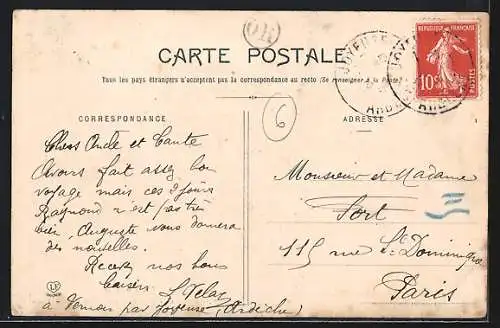 OR
CARTE POSTALE
Tous les pays étrangers n'acceptent pas la correspondance au recto (Se renseigner à la Poste)
JOYEUSE
ARDÈCHE
RÉPUBLIQUE FRANÇAISE
10c
POSTES
6
CORRESPONDANCE
ADRESSE
Chers Oncle et Tante
Avons fait assez bon
voyage mais ces 2 jours
Raymond n'est pas très
bien, Auguste vous donnera
des nouvelles.
Recevez nos bons
baisers
à Vernon par Joyeuse, (Ardèche)
Monsieur et Madame
Fort
115 rue St Dominique
Paris